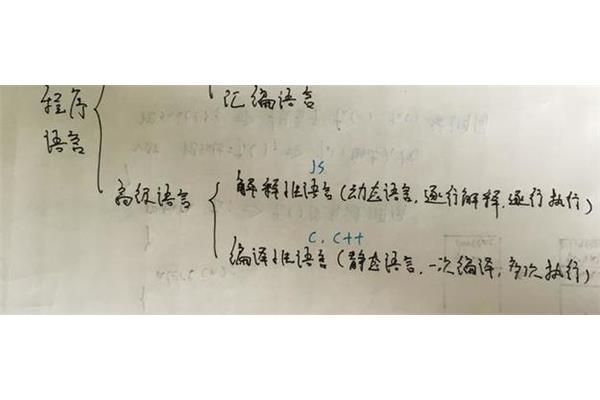 汇编语言
程序
语言
JS
高级语言
解释性语言(动态语言,逐行解释,逐行执行)
C, C++
编译性语言(静态语言,一次编译,多次执行)